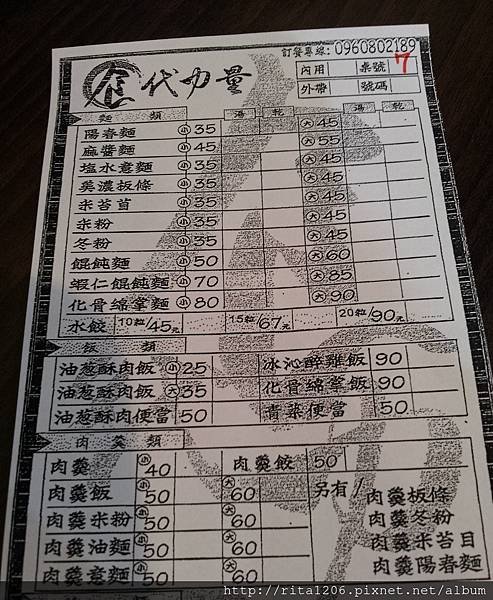 訂餐專線:0960802189
食代力量
內用 桌號 7
外帶 號碼
麵 類 湯 乾 湯 乾
陽春麵 小 35 大 45
麻醬麵 小 45 大 55
塩水意麵 小 35 大 45
美濃板條 小 35 大 45
米苔苜 小 35 大 45
米粉 小 35 大 45
冬粉 小 35 大 45
餛飩麵 小 50 大 60
蝦仁餛飩麵 小 70 大 85
化骨綿掌麵 小 80 大 90
水餃 10粒/45元 15粒/67元 20粒/90元
飯 類
油葱酥肉飯 小 25 冰沁醉雞飯 90
油葱酥肉飯 大 35 化骨綿掌飯 90
油葱酥肉便當 50 青菜便當 50
肉 羹 類
肉羹 小 40 肉羹餃 50
肉羹飯 小 50 大 60 另有/肉羹板條
肉羹米粉 小 50 大 60 肉羹冬粉
肉羹油麵 小 50 大 60 肉羹米苔目
肉羹意麵 小 50 大 60 肉羹陽春麵
http://rita1206.pixnet.net/album